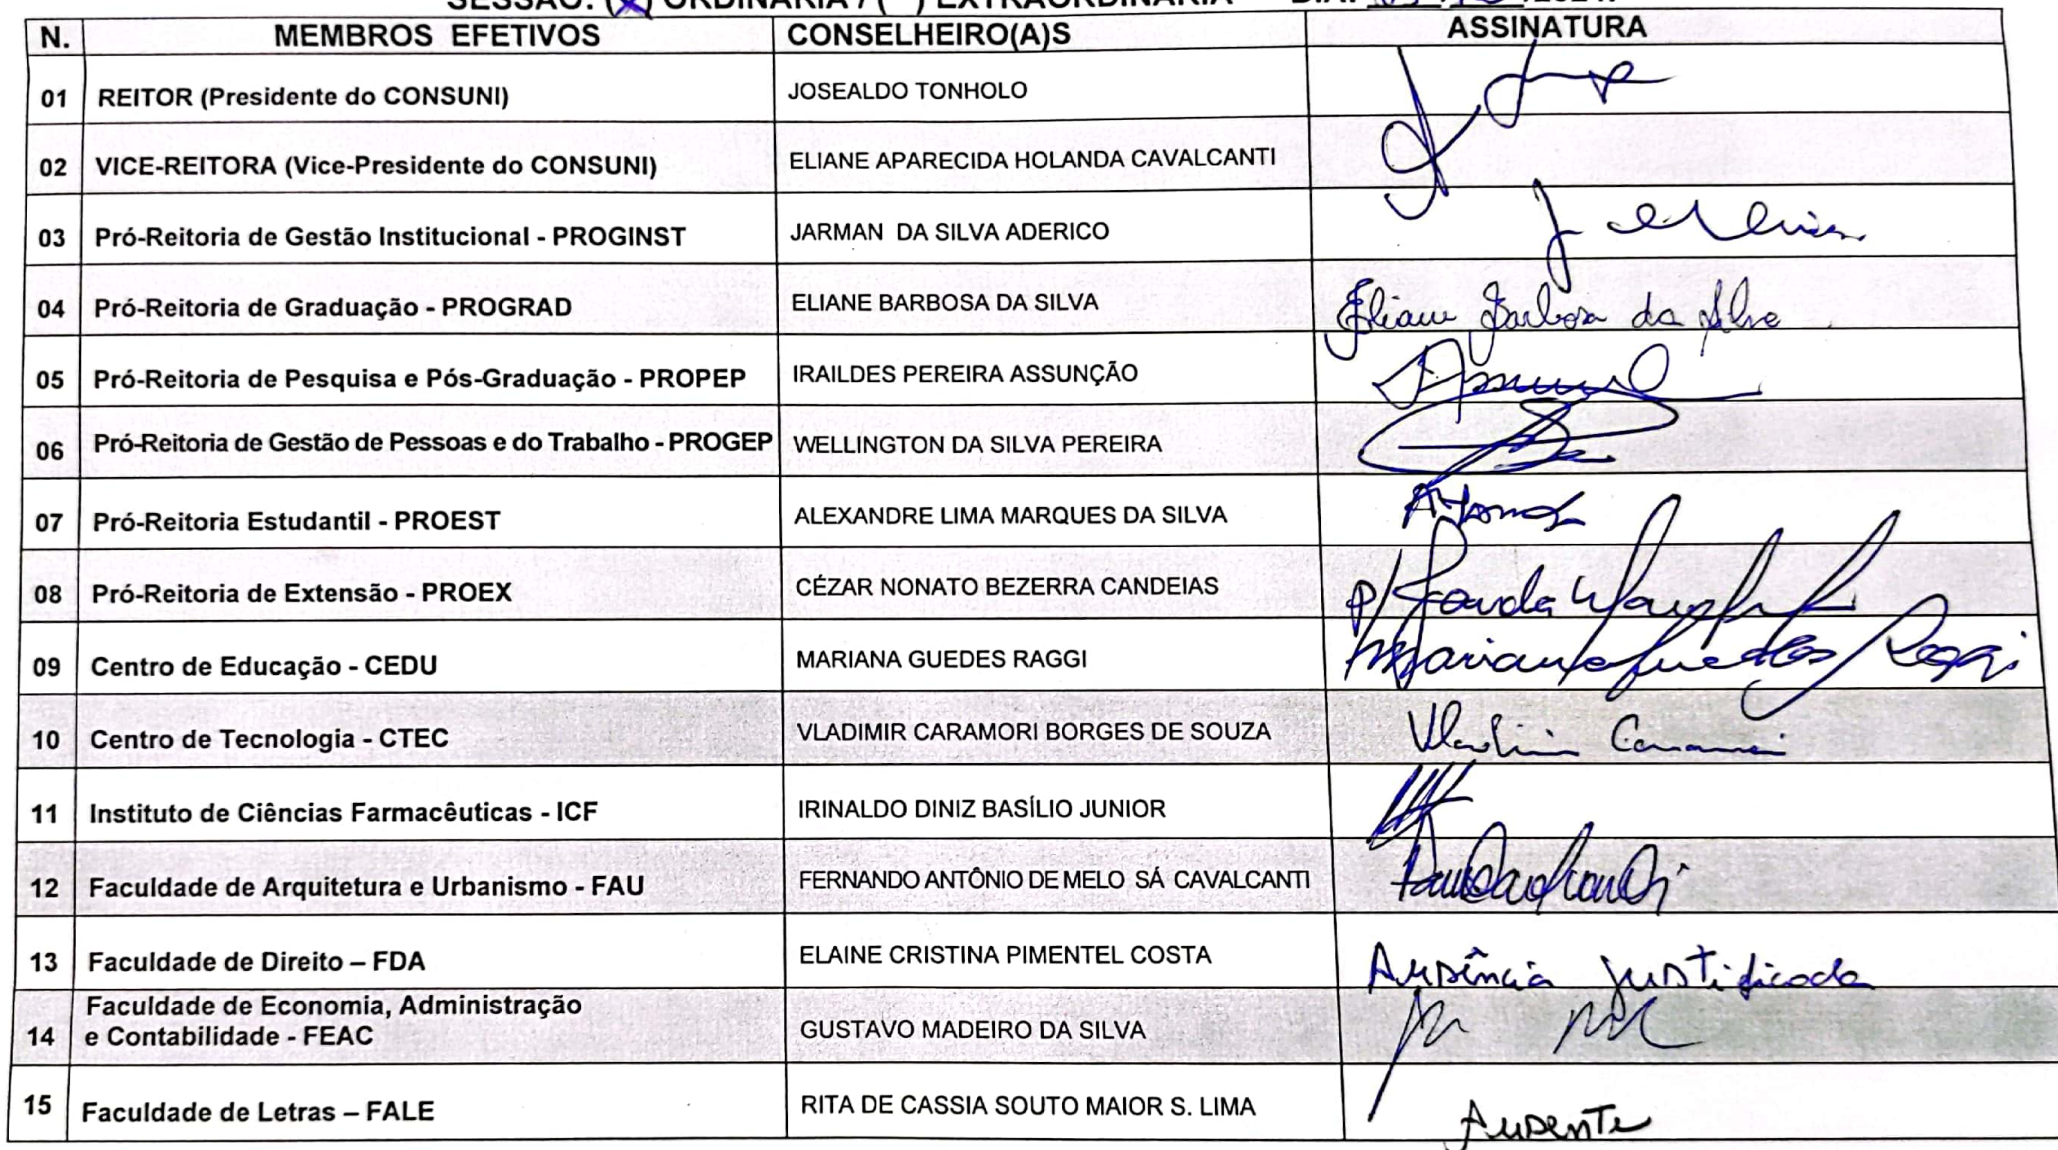 SESSÃO: (X) ORDINÁRIA / ( ) EXTRAORDINÁRIA DIA:
N. MEMBROS EFETIVOS CONSELHEIRO(A)S ASSINATURA
01 REITOR (Presidente do CONSUNI) JOSEALDO TONHOLO
02 VICE-REITORA (Vice-Presidente do CONSUNI) ELIANE APARECIDA HOLANDA CAVALCANTI
03 Pró-Reitoria de Gestão Institucional - PROGINST JARMAN DA SILVA ADERICO
04 Pró-Reitoria de Graduação - PROGRAD ELIANE BARBOSA DA SILVA Eliane Barbosa da Silva
05 Pró-Reitoria de Pesquisa e Pós-Graduação - PROPEP IRAILDES PEREIRA ASSUNÇÃO
06 Pró-Reitoria de Gestão de Pessoas e do Trabalho - PROGEP WELLINGTON DA SILVA PEREIRA
07 Pró-Reitoria Estudantil - PROEST ALEXANDRE LIMA MARQUES DA SILVA
08 Pró-Reitoria de Extensão - PROEX CÉZAR NONATO BEZERRA CANDEIAS p/
09 Centro de Educação - CEDU MARIANA GUEDES RAGGI Mariana Guedes Raggi
10 Centro de Tecnologia - CTEC VLADIMIR CARAMORI BORGES DE SOUZA Vladimir Caramori
11 Instituto de Ciências Farmacêuticas - ICF IRINALDO DINIZ BASÍLIO JUNIOR
12 Faculdade de Arquitetura e Urbanismo - FAU FERNANDO ANTÔNIO DE MELO SÁ CAVALCANTI
13 Faculdade de Direito – FDA ELAINE CRISTINA PIMENTEL COSTA Ausência justificada
Faculdade de Economia, Administração
14 e Contabilidade - FEAC GUSTAVO MADEIRO DA SILVA
15 Faculdade de Letras – FALE RITA DE CASSIA SOUTO MAIOR S. LIMA Ausente